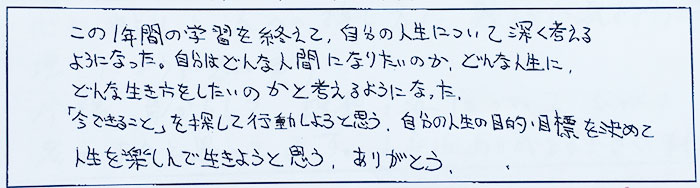 この1年間の学習を終えて、自分の人生について深く考える
ようになった。自分はどんな人間になりたいのか、どんな人生に、
どんな生き方をしたいのかと考えるようになった。
「今できること」を探して行動しようと思う。自分の人生の目的・目標を決めて
人生を楽しんで生きようと思う。ありがとう。